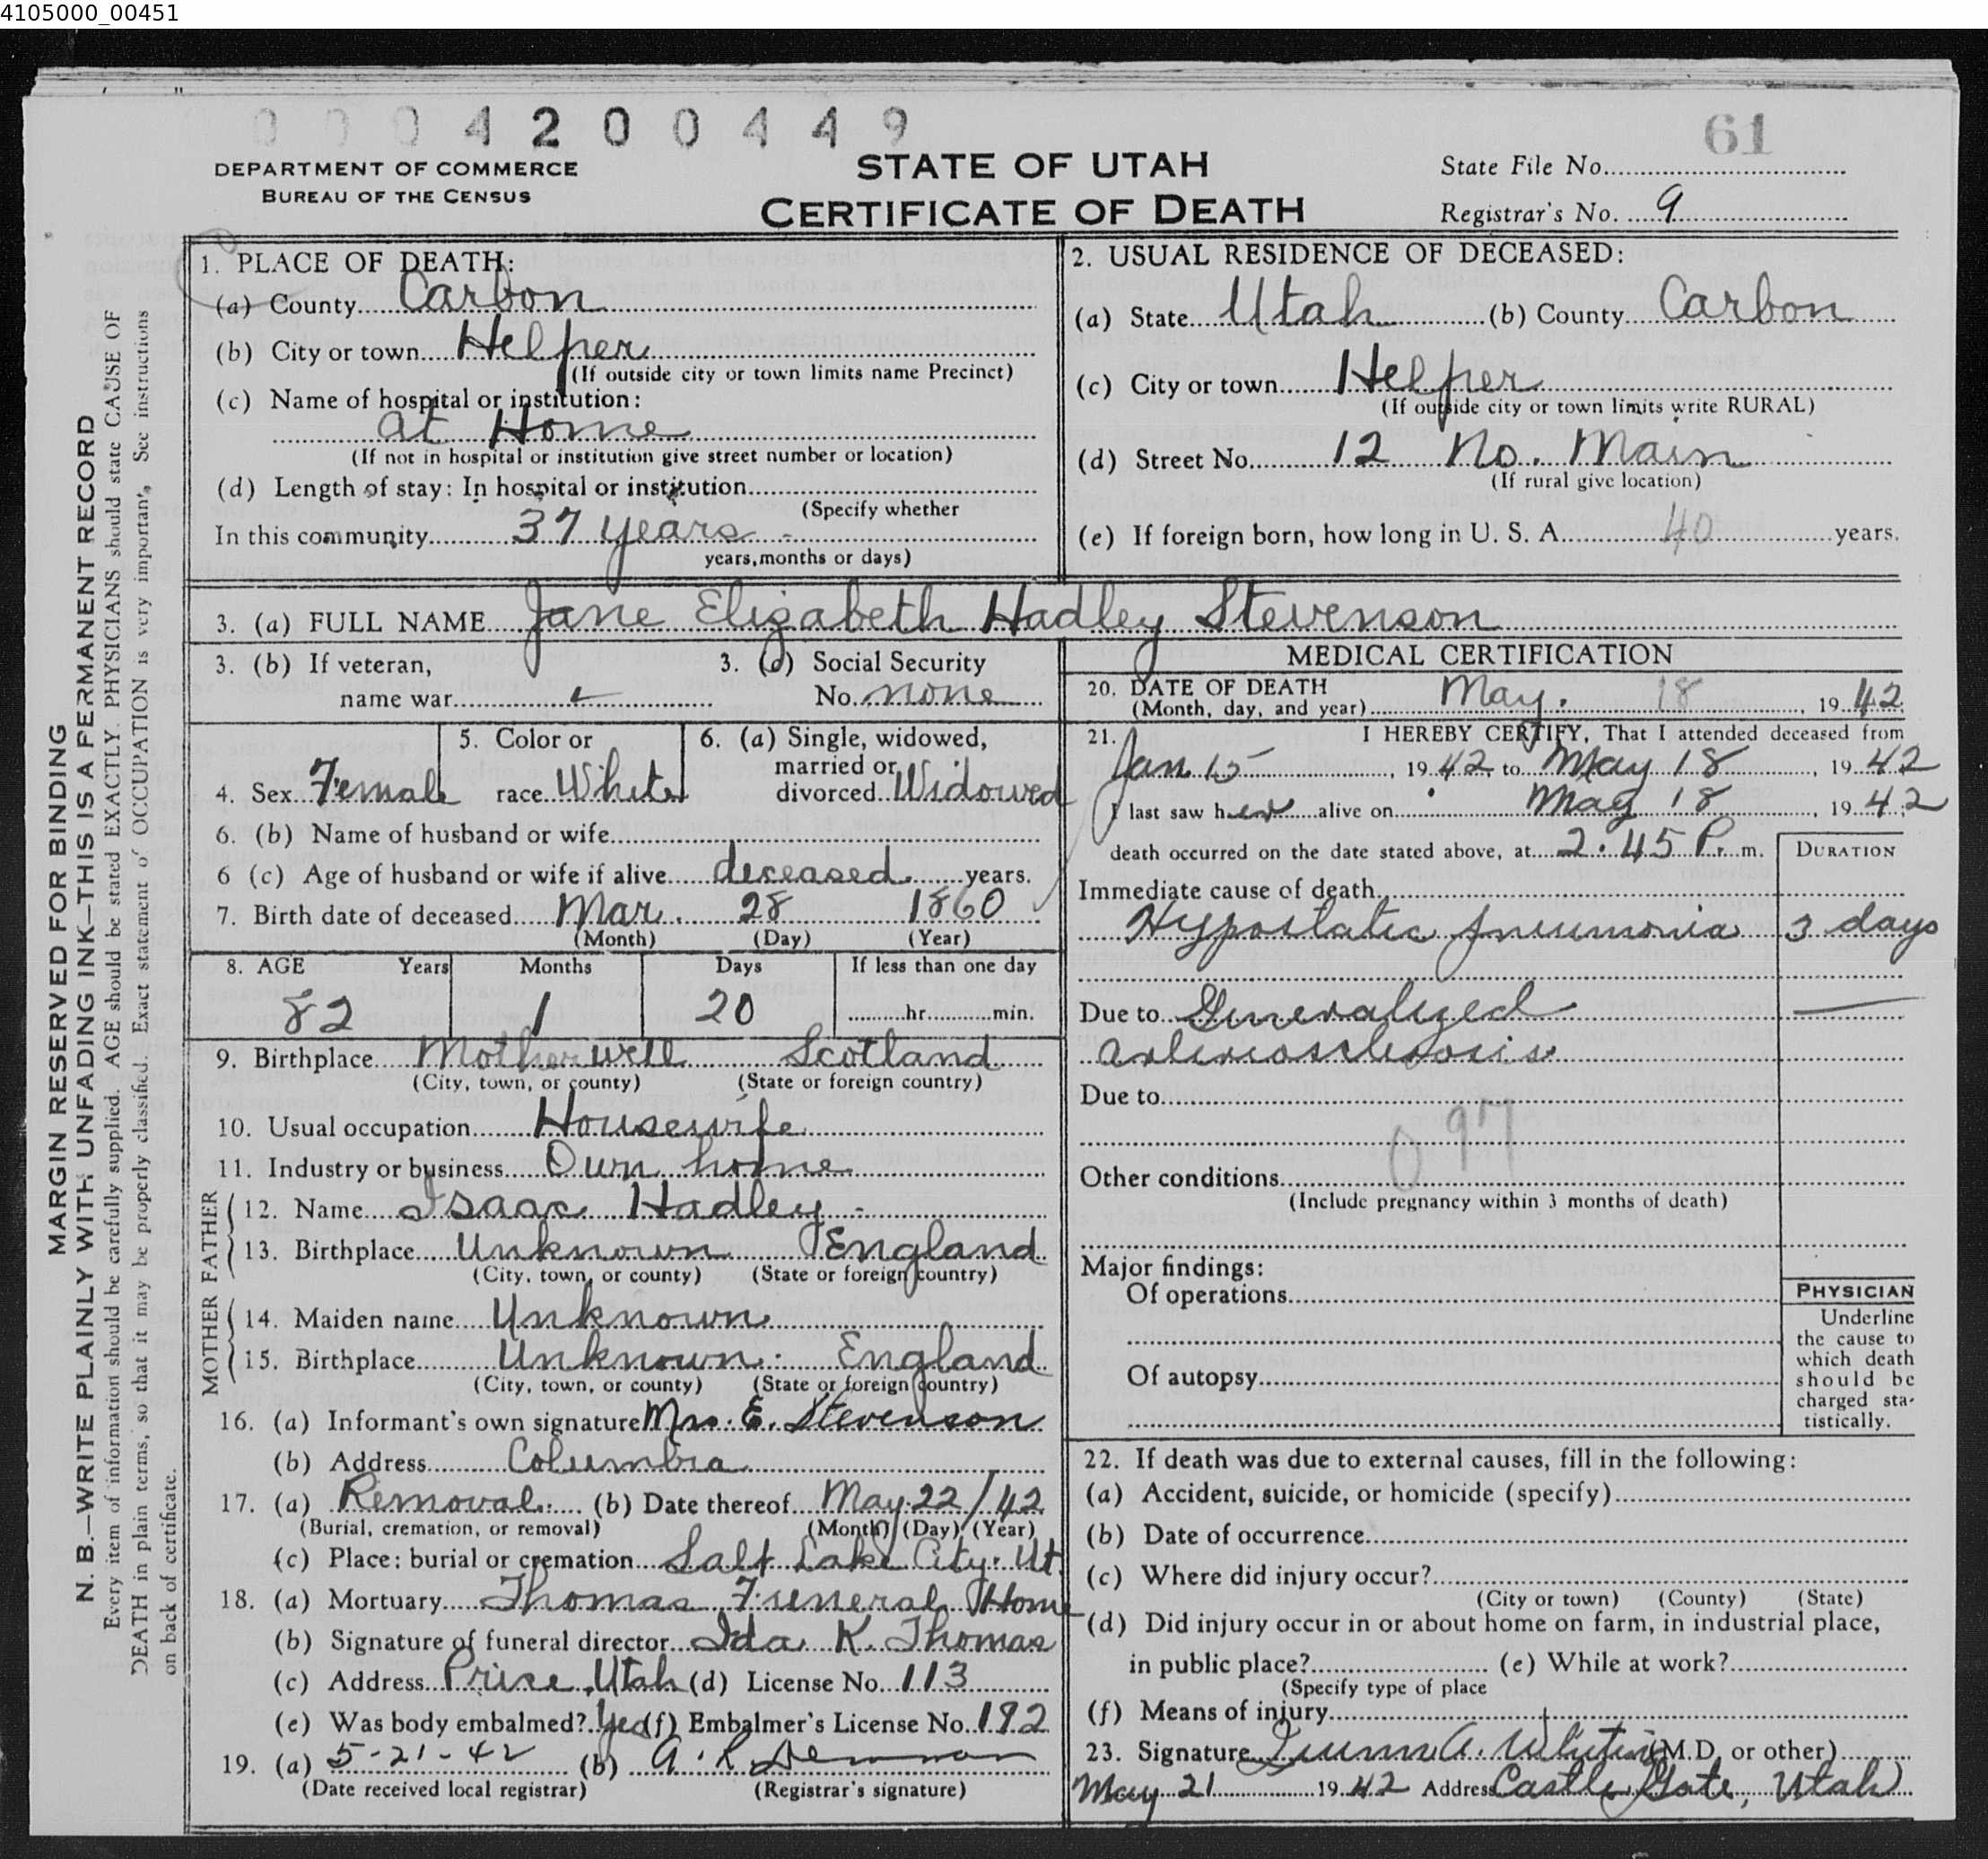 4105000_00451
0004200449
61
DEPARTMENT OF COMMERCE
BUREAU OF THE CENSUS
STATE OF UTAH
CERTIFICATE OF DEATH
State File No.
Registrar's No. 9
MARGIN RESERVED FOR BINDING
N. B.—WRITE PLAINLY WITH UNFADING INK—THIS IS A PERMANENT RECORD
Every item of information should be carefully supplied. AGE should be stated EXACTLY. PHYSICIANS should state CAUSE OF
DEATH in plain terms, so that it may be properly classified. Exact statement of OCCUPATION is very important. See instructions
on back of certificate.
1. PLACE OF DEATH:
(a) County Carbon
(b) City or town Helper
(If outside city or town limits name Precinct)
(c) Name of hospital or institution:
at Home
(If not in hospital or institution give street number or location)
(d) Length of stay: In hospital or institution
(Specify whether
In this community 37 years
years, months or days)
2. USUAL RESIDENCE OF DECEASED:
(a) State Utah (b) County Carbon
(c) City or town Helper
(If outside city or town limits write RURAL)
(d) Street No. 12 No. Main
(If rural give location)
(e) If foreign born, how long in U. S. A. 40 years.
3. (a) FULL NAME Jane Elizabeth Hadley Stevenson
3. (b) If veteran, 3. (c) Social Security
name war No. none
4. Sex Female 5. Color or race White 6. (a) Single, widowed, married or divorced Widowed
6. (b) Name of husband or wife
6 (c) Age of husband or wife if alive deceased years.
7. Birth date of deceased Mar. 28 1860
(Month) (Day) (Year)
8. AGE Years Months Days If less than one day
82 1 20 hr. min.
9. Birthplace Motherwell Scotland
(City, town, or county) (State or foreign country)
10. Usual occupation Housewife
11. Industry or business Own home
FATHER
12. Name Isaac Hadley
13. Birthplace Unknown England
(City, town, or county) (State or foreign country)
MOTHER
14. Maiden name Unknown
15. Birthplace Unknown England
(City, town, or county) (State or foreign country)
16. (a) Informant's own signature Mrs. E. Stevenson
(b) Address Columbia
17. (a) Removal (b) Date thereof May 22/42
(Burial, cremation, or removal) (Month) (Day) (Year)
(c) Place: burial or cremation Salt Lake City, Ut.
18. (a) Mortuary Thomas Funeral Home
(b) Signature of funeral director Ida K. Thomas
(c) Address Price, Utah (d) License No. 113
(e) Was body embalmed? Yes (f) Embalmer's License No. 192
19. (a) 5-21-42 (b) A. R.
(Date received local registrar) (Registrar's signature)
MEDICAL CERTIFICATION
20. DATE OF DEATH
(Month, day, and year) May. 18, 1942
21. I HEREBY CERTIFY, That I attended deceased from
Jan 15, 1942 to May 18, 1942
I last saw her alive on May 18, 1942
death occurred on the date stated above, at 2.45 P. m.
DURATION
Immediate cause of death
Hypostatic pneumonia 3 days
Due to Generalized
arteriosclerosis
Due to
097
Other conditions
(Include pregnancy within 3 months of death)
Major findings:
Of operations
Of autopsy
PHYSICIAN
Underline
the cause to
which death
should be
charged sta-
tistically.
22. If death was due to external causes, fill in the following:
(a) Accident, suicide, or homicide (specify)
(b) Date of occurrence
(c) Where did injury occur?
(City or town) (County) (State)
(d) Did injury occur in or about home on farm, in industrial place,
in public place? (e) While at work?
(Specify type of place
(f) Means of injury
23. Signature (M.D. or other)
May 21 1942 Address Castle Gate, Utah